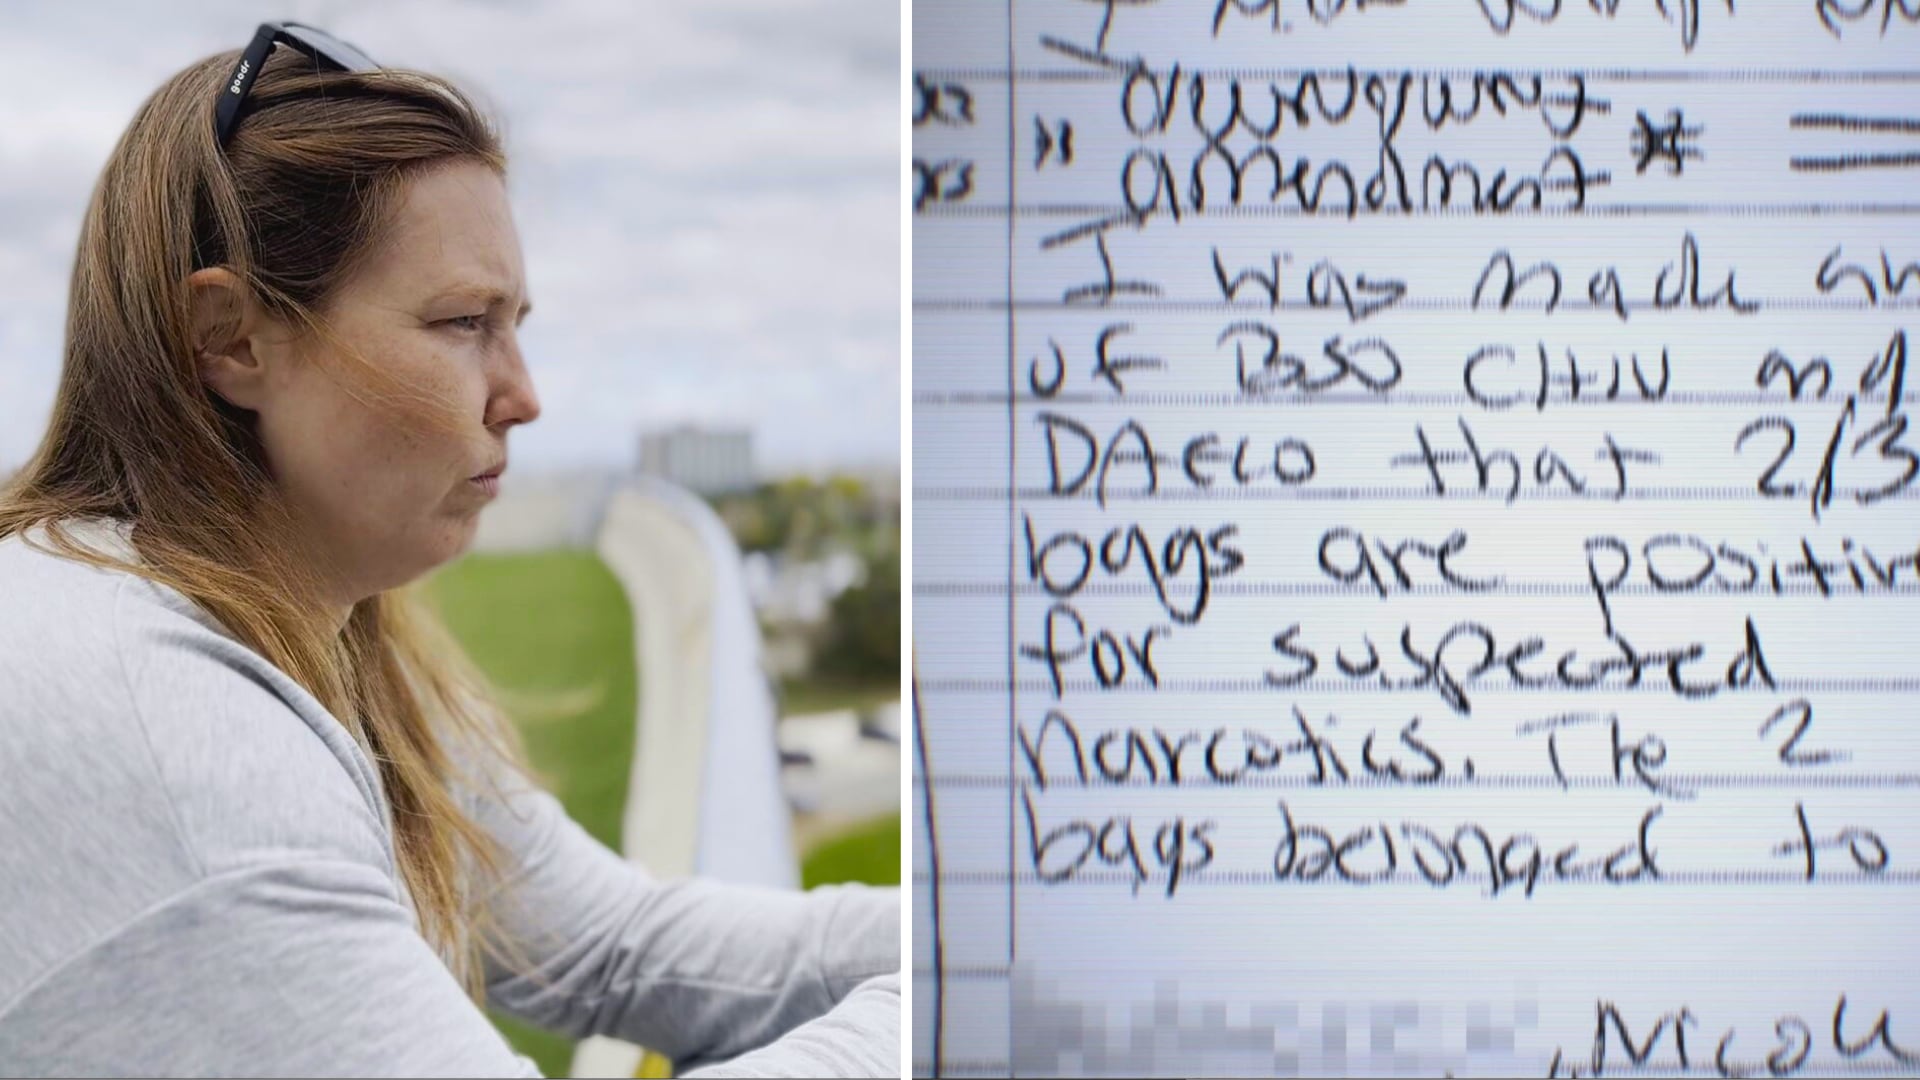 goodr
amendment *
I was made
of BSO CHIU and
DAECO that 2/3
bags are positiv
for suspected
narcotics. The 2
bags belonged to